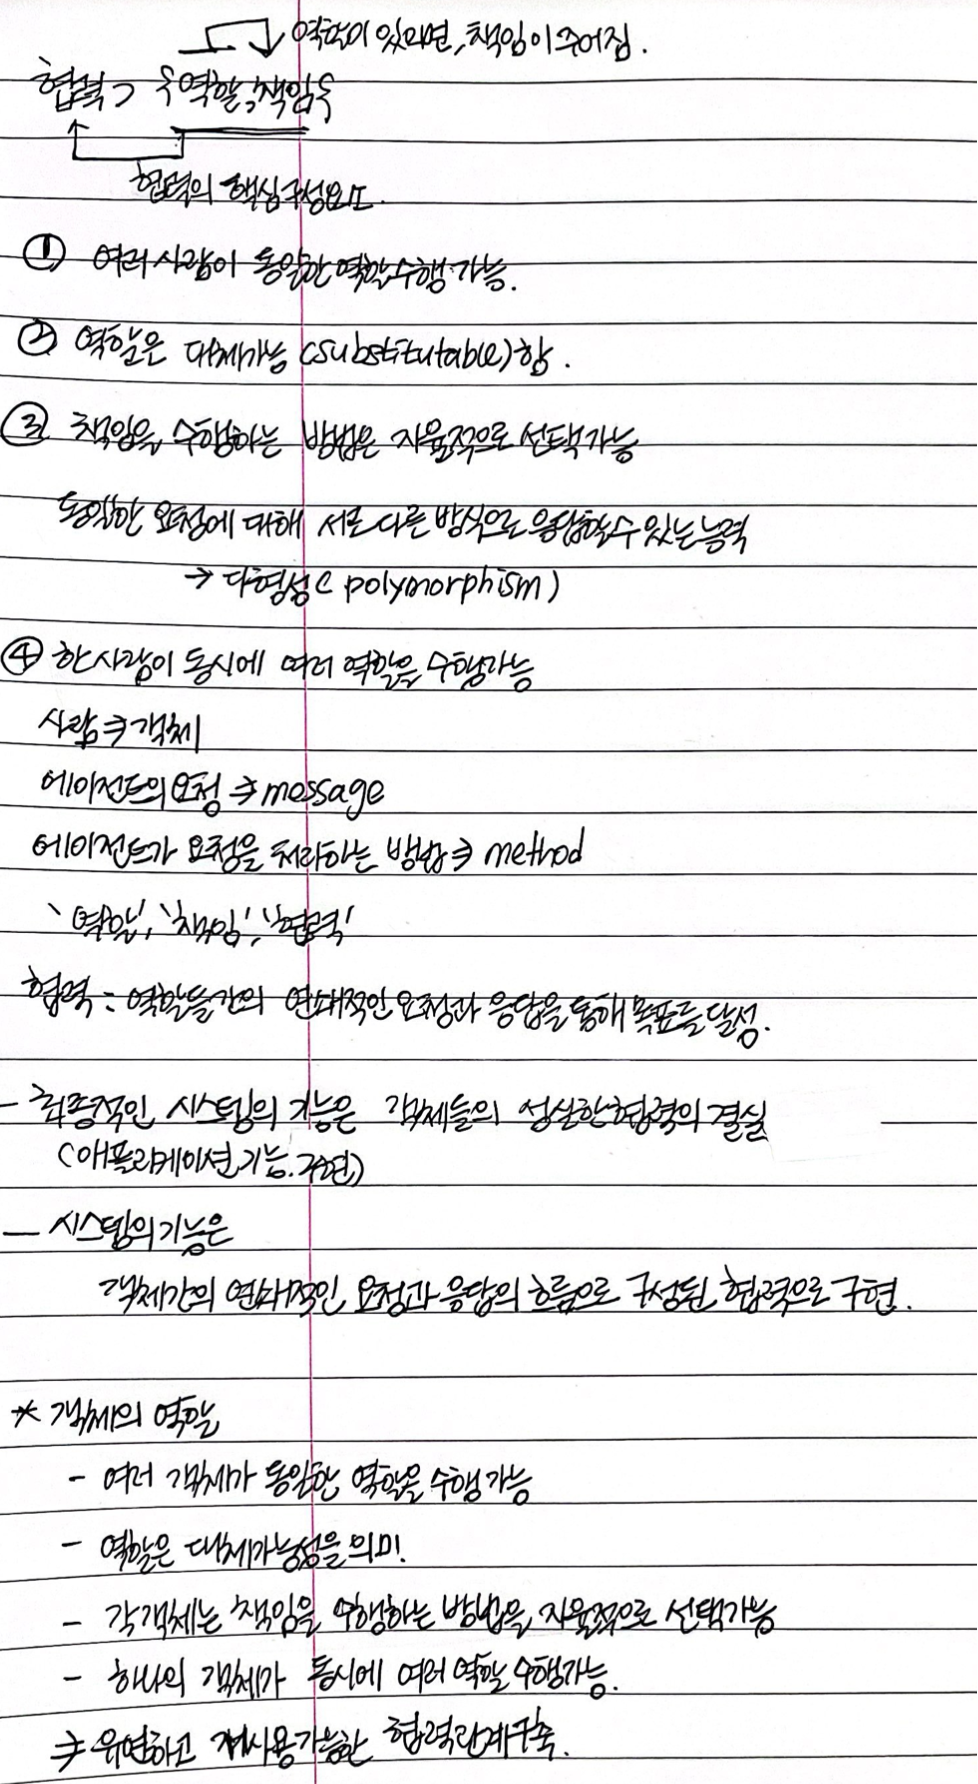 역할이 있으면, 책임이 주어짐.
협력 > {역할, 책임}
협력의 핵심구성요소.
① 여러 사람이 동일한 역할 수행 가능.
② 역할은 대체가능 (substitutable)함.
③ 책임을 수행하는 방법은 자율적으로 선택가능
동일한 요청에 대해 서로 다른 방식으로 응답할 수 있는 능력
→ 다형성 (polymorphism)
④ 한 사람이 동시에 여러 역할을 수행가능
사람 ⇒ 객체
에이전트의 요청 ⇒ message
에이전트가 요청을 처리하는 방법 ⇒ method
'역할', '책임', '협력'
협력 : 역할들간의 연쇄적인 요청과 응답을 통해 목표를 달성.
- 최종적인 시스템의 기능은 객체들의 성실한 협력의 결실
(애플리케이션 기능.구현)
- 시스템의 기능은
객체간의 연쇄적인 요청과 응답의 흐름으로 구성된 협력으로 구현.
* 객체의 역할
- 여러 객체가 동일한 역할을 수행 가능
- 역할은 대체가능성을 의미.
- 각 객체는 책임을 수행하는 방법을 자율적으로 선택가능
- 하나의 객체가 동시에 여러 역할 수행가능.
⇒ 유연하고 재사용가능한 협력관계구축.